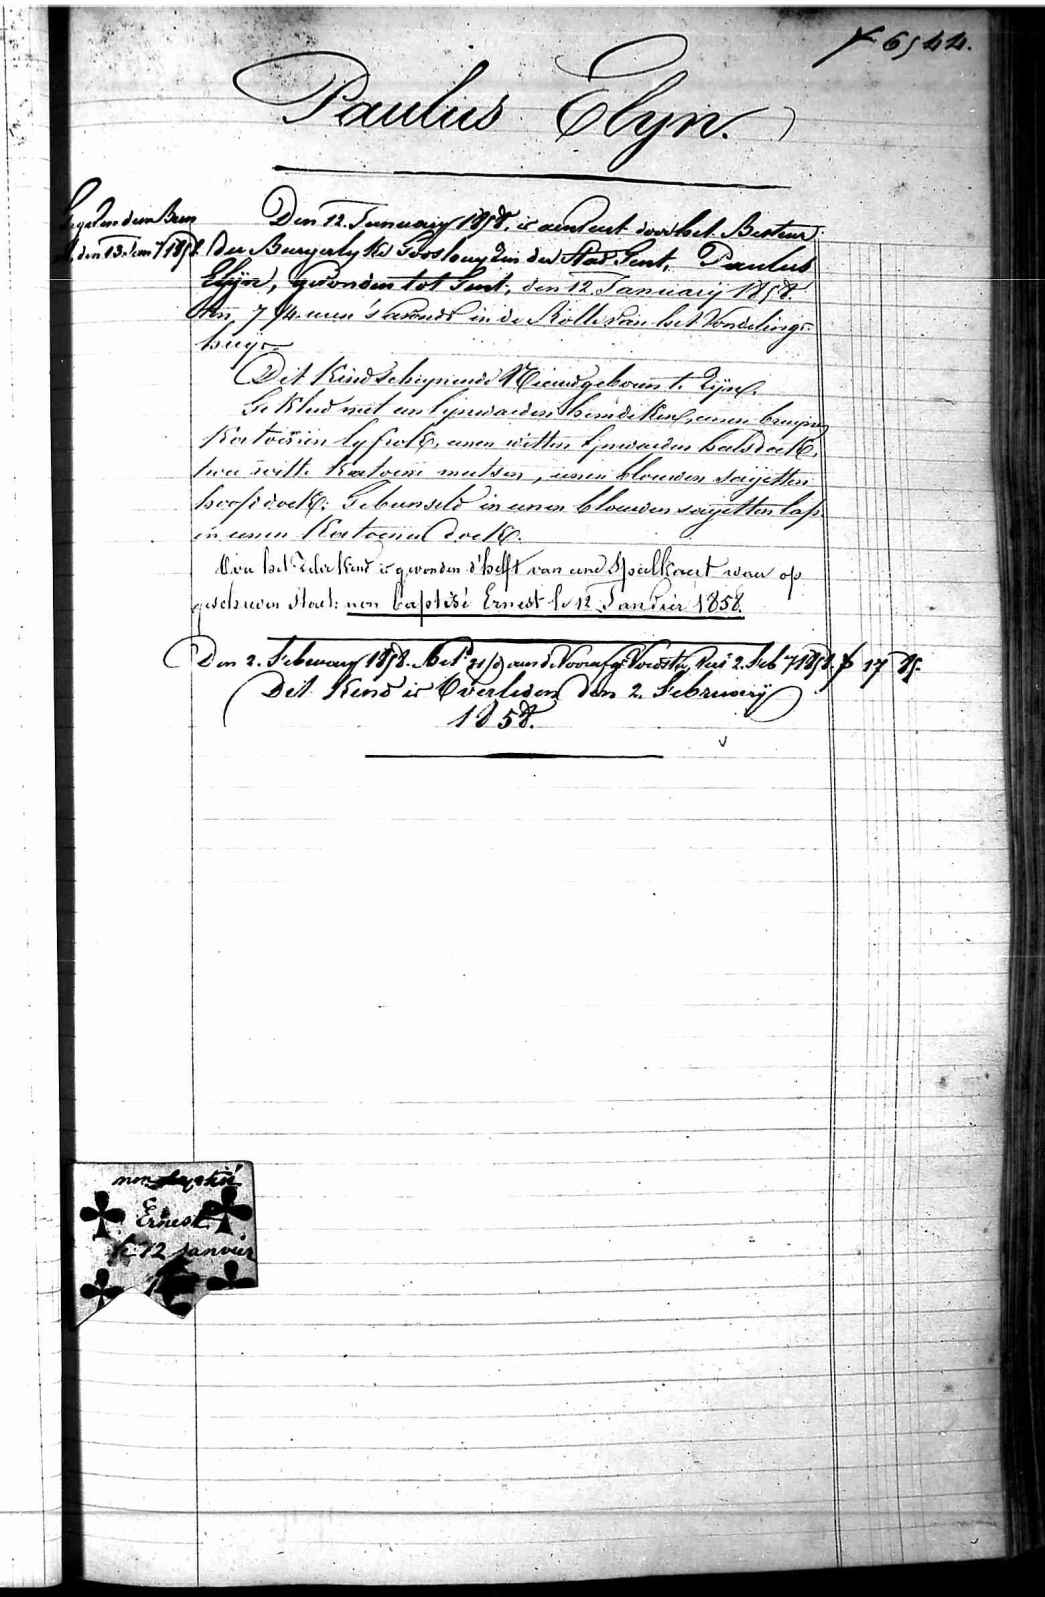 6544.
Paulus Elyn.
den 13 Jan 1858.
Den 12. January 1858, is aenveert door het Bestuer
der Burgerlyke Godshuyzen der Stad Gent, Paulus
Elyn, gevonden tot Gent, den 12. January 1858.
ten 7 1/4 uren 's avonds in de Rolle van het Vondelings-
huys.
Dit Kind schynende Nieuwgeboren te zyn.
Gekleed met een lynwaeden hemdeken, eenen bruynen
Katoenen lyfrok, eenen witten lynwaeden halsdoek,
twee witte Katoene mutsen, eenen blauwen sayetten
hoofddoek; Gebunseld in eenen blauwen sayetten lap
in eenen Katoenen doek.
Over het Zelve Kind is gevonden d'helft van eene Speelkaert waer op
geschreven staet: non baptisé Ernest le 12 Janvier 1858.
Den 2. February 1858. 2 Feb 1858. 17 85.
Dit Kind is Overleden den 2. February
1858.
non baptisé
Ernest
le 12 janvier